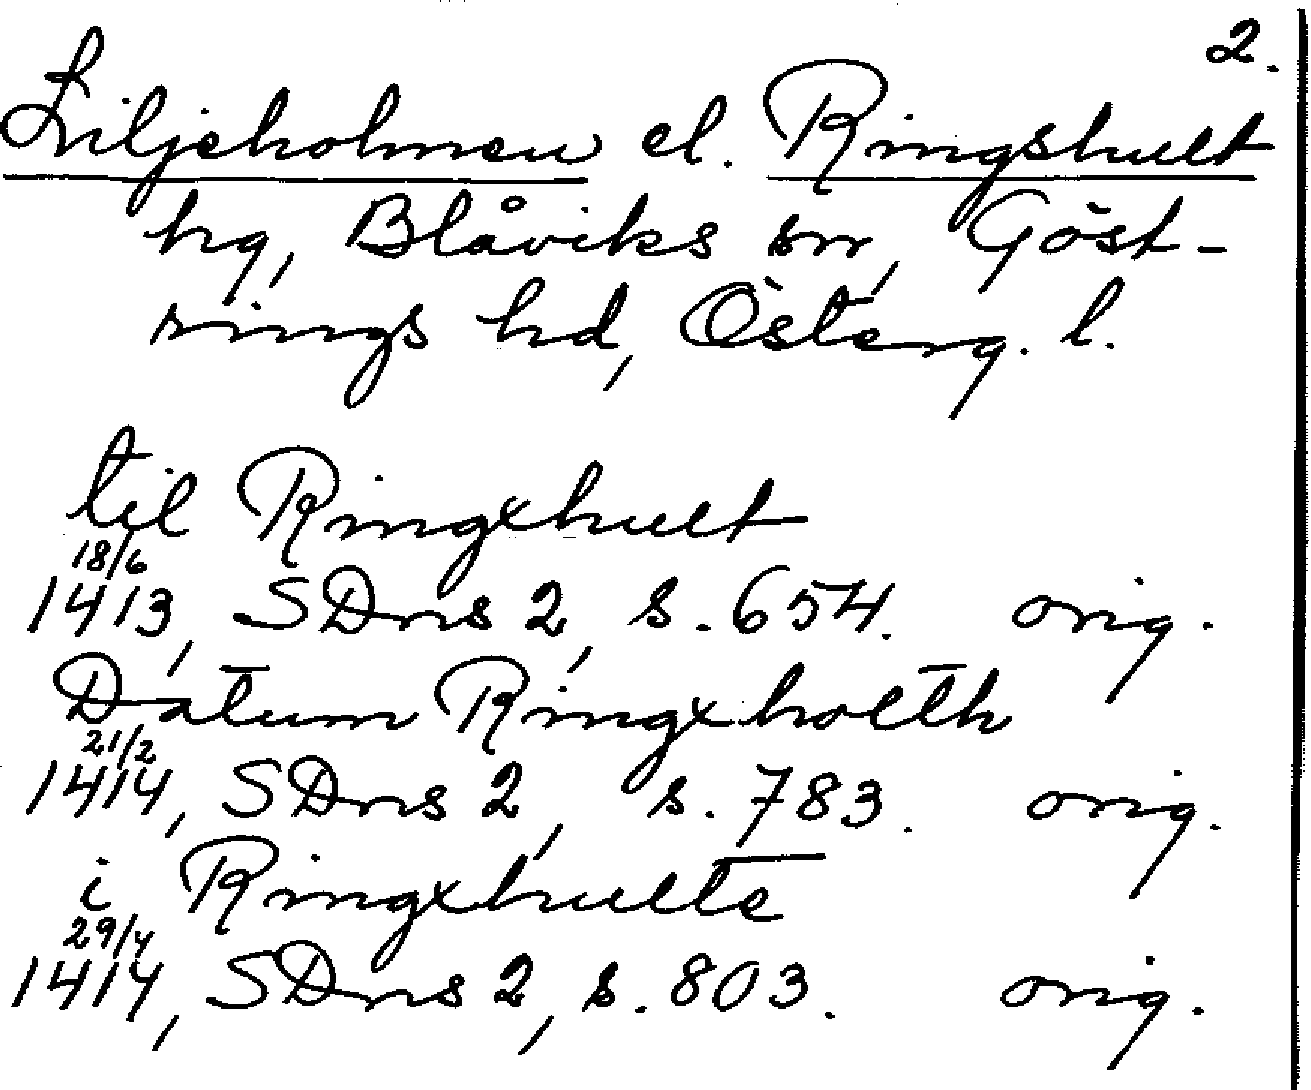 2.
Liljeholmen el. Ringshult
hg, Blåviks sn, Göst-
rings hd, Österg. l.
til Ringxhult
18/6
1413, SDns 2, s. 654. orig.
Datum Ringxholth
21/2
1414, SDns 2, s. 783. orig.
i Ringxhulte
29/4
1414, SDns 2, s. 803. orig.